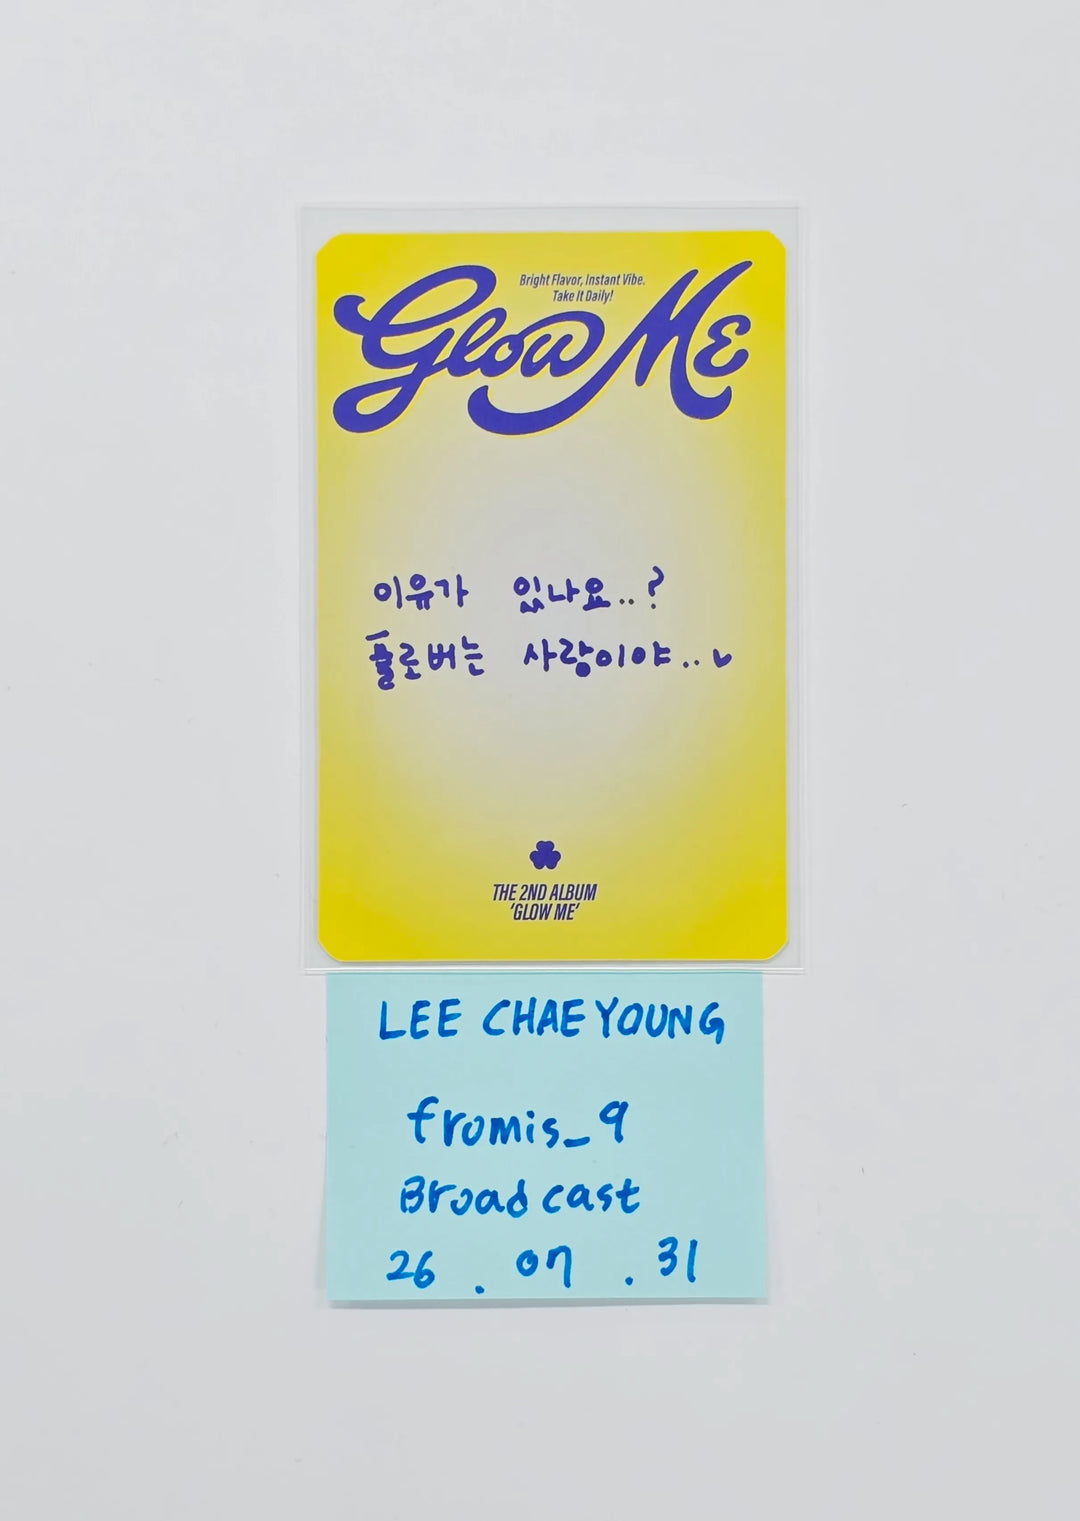 Bright Flavor, Instant Vibe.
Take It Daily!
Glow Me
이유가 있나요..?
플로버는 사랑이야..♥
THE 2ND ALBUM
'GLOW ME'
LEE CHAEYOUNG
fromis_9
Broadcast
26.07.31